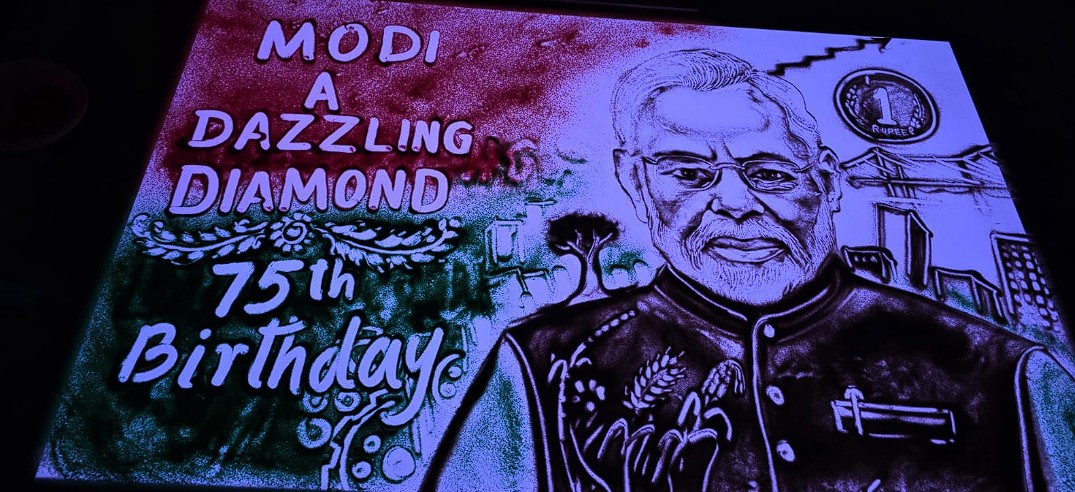 MODI
A
DAZZLING
DIAMOND
75th
Birthday
1
RUPEE